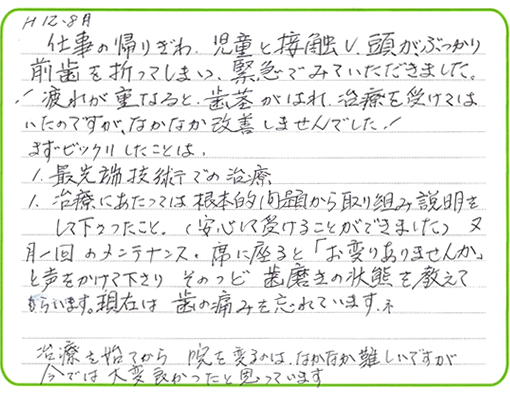 H 12.8月
仕事の帰りぎわ、児童と接触し、頭がぶつかり
前歯を折ってしまい、緊急でみていただきました。
疲れが重なると、歯茎がはれ、治療を受けては
いたのですが、なかなか改善しませんでした!
まずビックリしたことは、
1. 最先端技術での治療
1. 治療にあたっては根本的問題から取り組み説明を
して下さったこと。(安心して受けることができました) 又
月一回のメンテナンス。席に座ると「お変りありませんか」
と声をかけて下さり そのつど 歯磨きの状態を教えて
もらいます。現在は 歯の痛みを忘れています。
治療を始てから 院を変るのは、なかなか難しいですが
今では大変良かったと思っています